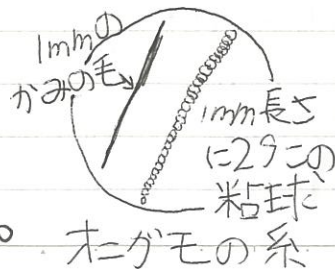 1mmの
かみの毛
1mm長さ
に29この
粘球
オニグモの糸